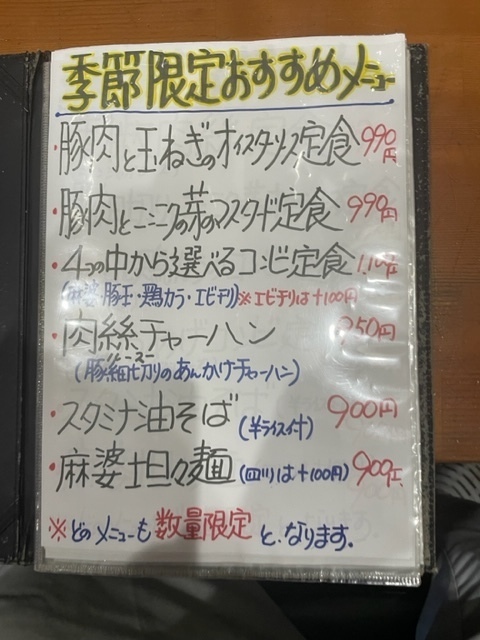 季節限定おすすめメニュー
・豚肉と玉ねぎのオイスターソース定食 990円
・豚肉とニンニクの芽のマスタード定食 990円
・4つの中から選べるコンビ定食
(麻婆・豚玉・鶏カラ・エビチリ)※エビチリは+100円
・肉絲チャーハン 950円
(豚細切りのあんかけチャーハン)
・スタミナ油そば (半ライス付) 900円
・麻婆担々麺 (四川は+100円) 900円
※どのメニューも数量限定となります。